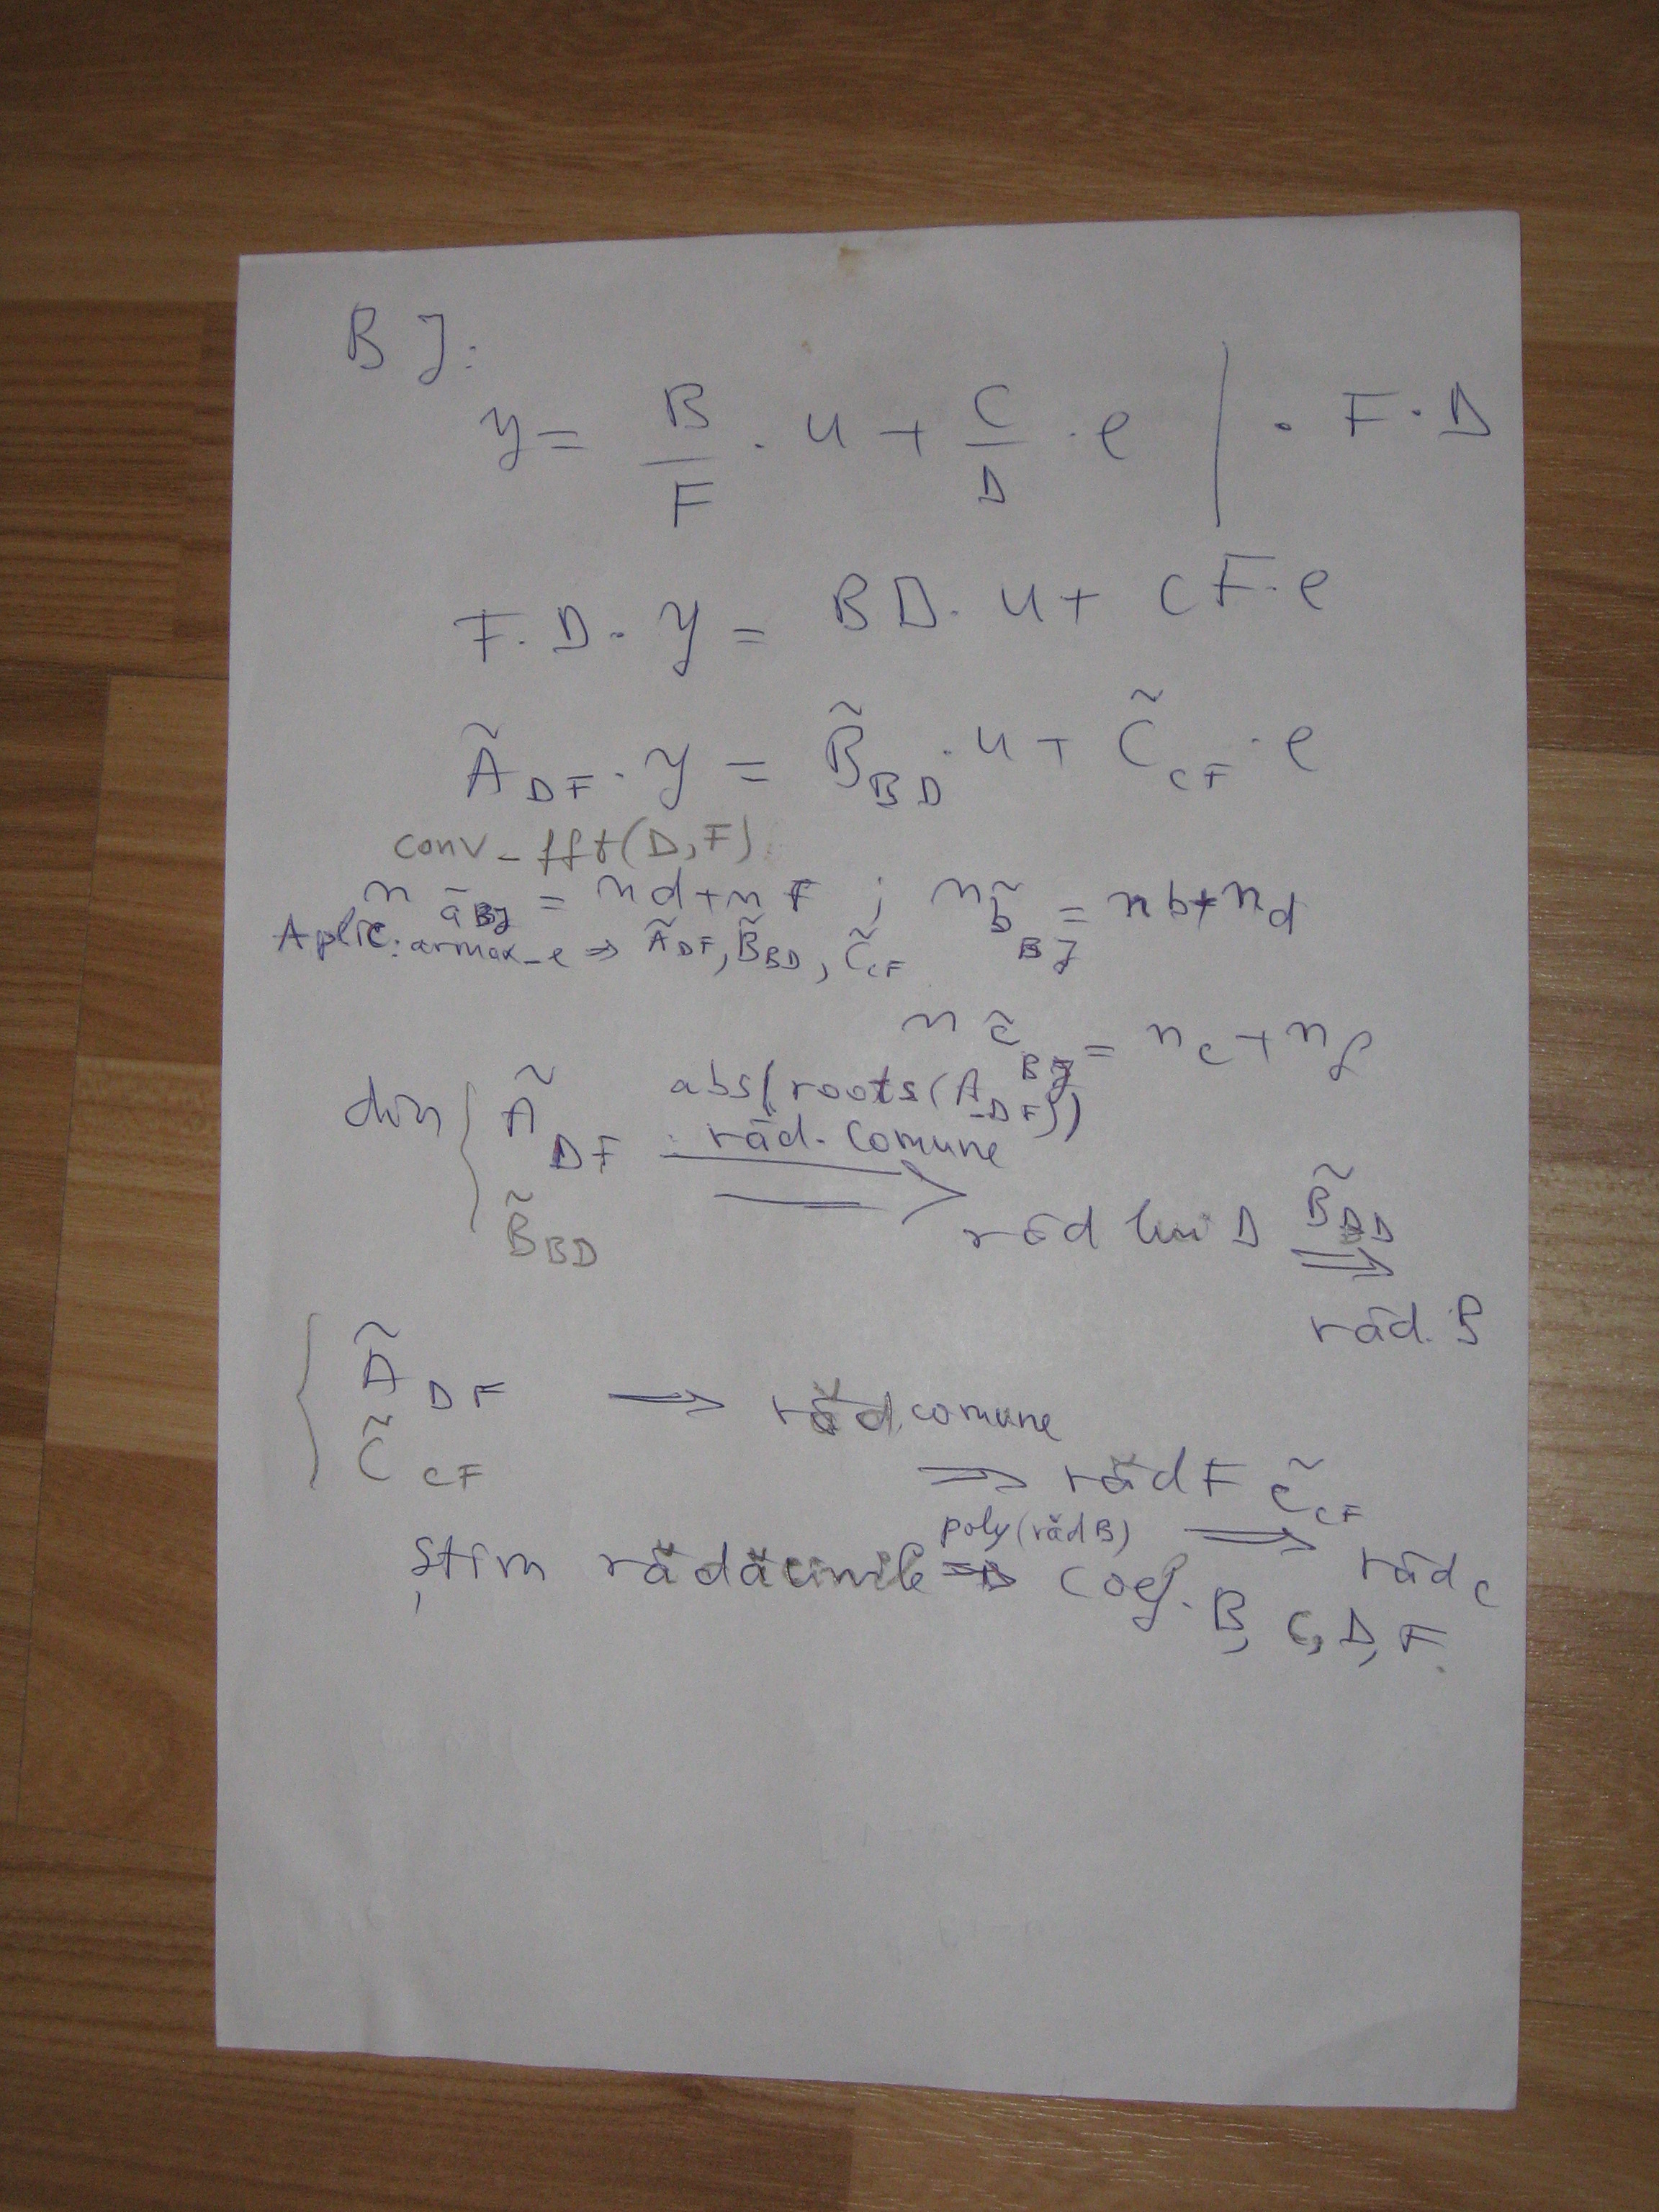 BJ:
y = B/F · u + C/D · e | · F · D
F · D · y = BD · u + CF · e
Ã_DF · y = B̃_BD · u + C̃_CF · e
conv_fft(D,F)
n ã_BJ = nd + nF ; n b̃_BJ = nb + nd
Aplic. armax_e ⇒ Ã_DF, B̃_BD, C̃_CF
n c̃_BJ = nc + nf
din { Ã_DF abs(roots(A_DF))
răd. comune
B̃_BD ⇒ răd lui D B̃_BD ⇒
răd. B
{ Ã_DF → răd. comune
C̃_CF ⇒ răd F C̃_CF ⇒ răd C
poly(răd B)
știm rădăcinile ⇒ coef. B, C, D, F.